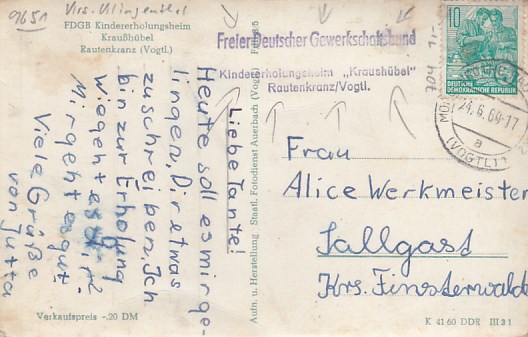 9651
Krs. Klingenthal
FDGB Kindererholungsheim
Kraußhübel
Rautenkranz (Vogtl.)
Liebe Tante!
Heute soll es mir ge-
lingen, Dir etwas
zuschreiben. Ich
bin zur Erholung
Wie geht es Dir?
Mir geht es gut.
Viele Grüße
von Jutta
Verkaufspreis -.20 DM
Aufn. u. Herstellung Staatl. Fotodienst Auerbach (Vogtl)
Freier Deutscher Gewerkschaftsbund
Kindererholungsheim „Kraushübel"
Rautenkranz/Vogtl.
10
DEUTSCHE
DEMOKRATISCHE REPUBLIK
24.6.60-17
a
(VOGTL)
Frau
Alice Werkmeister
Sallgast
Krs. Finsterwalde
K 41 60 DDR III 3 1